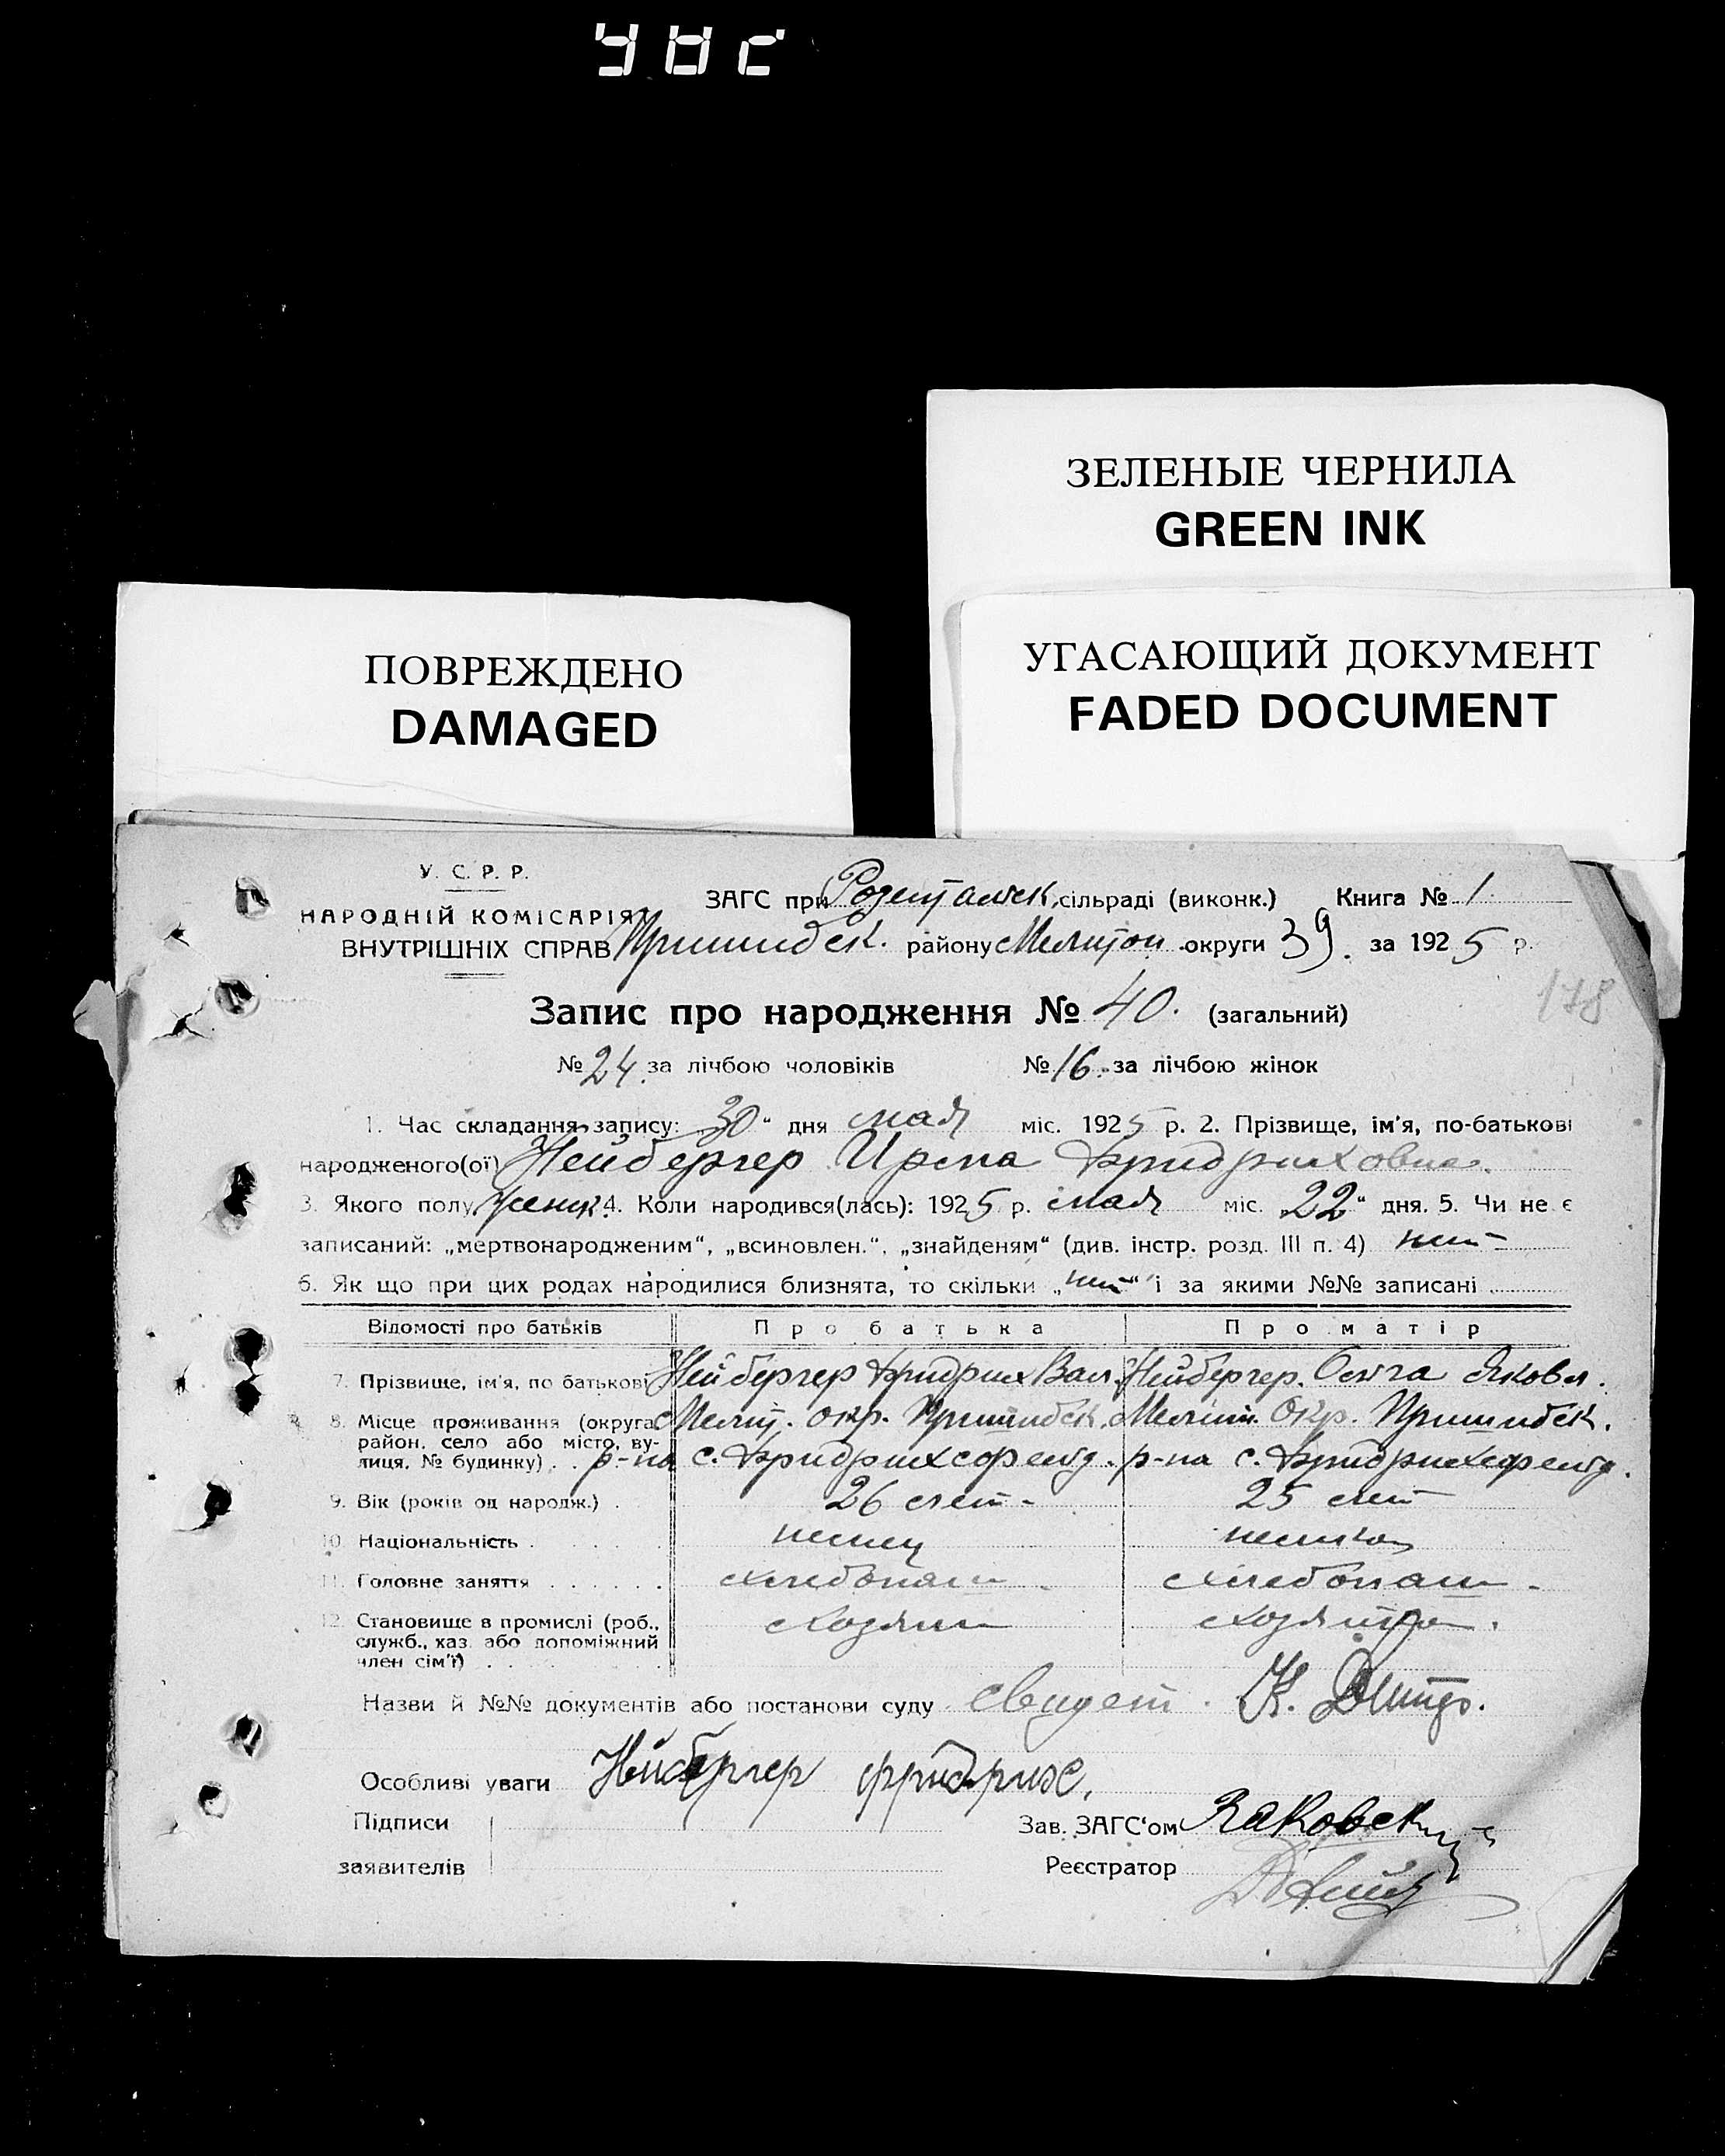 ЗЕЛЕНЫЕ ЧЕРНИЛА
GREEN INK
ПОВРЕЖДЕНО
DAMAGED
УГАСАЮЩИЙ ДОКУМЕНТ
FADED DOCUMENT
У. С. Р. Р.
НАРОДНІЙ КОМІСАРІЯТ
ВНУТРІШНІХ СПРАВ
ЗАГС при сільраді (виконк.) Книга № 1
Пришибск. району Мелитоп. округи 39. за 1925 р.
178
Запис про народження № 40. (загальний)
№ 24. за лічбою чоловіків № 16. за лічбою жінок
1. Час складання запису: „30“ дня мая міс. 1925 р. 2. Прізвище, ім'я, по-батькові
народженого(ої) Нейбергер Ирма Фридриховна.
3. Якого полу женск. 4. Коли народився(лась): 1925 р. мая міс. „22“ дня. 5. Чи не є
записаний: „мертвонародженим“, „всиновлен.“, „знайденям“ (див. інстр. розд. III п. 4) нет
6. Як що при цих родах народилися близнята, то скільки „нет“ і за якими №№ записані
Відомості про батьків Про батька Про матір
7. Прізвище, ім'я, по батькові Нейбергер Фридрих Вил. Нейбергер. Ольга Яковл.
8. Місце проживання (округа, район, село або місто, вулиця, № будинку) Мелит. окр. Пришибск. р-на с. Фридрихсфельд. Мелит. Окр. Пришибск. р-на с. Фридрихсфельд.
9. Вік (років од народж.) 26 лет 25 лет
10. Національність немец немка
11. Головне заняття хлебопаш. хлебопаш.
12. Становище в промислі (роб., служб., хаз. або допоміжний член сім'ї) хозяин хозяйка.
Назви й №№ документів або постанови суду свидет.
Особливі уваги Нейбергер Фридрих.
Підписи
заявителів
Зав. ЗАГС'ом
Реєстратор